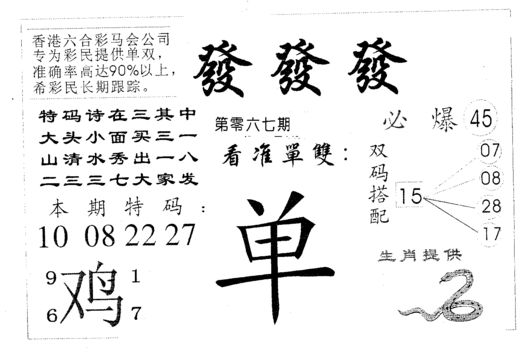 香港六合彩马会公司
专为彩民提供单双,
准确率高达90%以上,
希彩民长期跟踪。
發 發 發
特码诗在三其中
大头小面买三一
山清水秀出一八
二三三七大家发
第零六七期
看准單雙:
必 爆 45
双码搭配
15
07
08
28
17
本期特码:
10 08 22 27
单
9 鸡 1
6 7
生肖提供